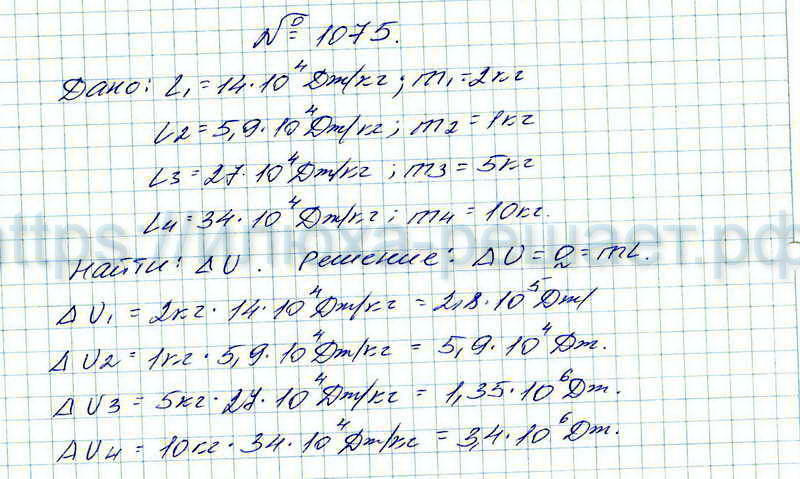 № 1075.
Дано: L₁ = 14·10⁴ Дж/кг; m₁ = 2кг
L₂ = 5,9·10⁴ Дж/кг; m₂ = 1кг
L₃ = 27·10⁴ Дж/кг; m₃ = 5кг
L₄ = 34·10⁴ Дж/кг; m₄ = 10кг.
https://илюха-решает.рф
Найти: ΔU. Решение: ΔU = Q = mL.
ΔU₁ = 2кг · 14·10⁴ Дж/кг = 2,8·10⁵ Дж/
ΔU₂ = 1кг · 5,9·10⁴ Дж/кг = 5,9·10⁴ Дж.
ΔU₃ = 5кг · 27·10⁴ Дж/кг = 1,35·10⁶ Дж.
ΔU₄ = 10кг · 34·10⁴ Дж/кг = 3,4·10⁶ Дж.